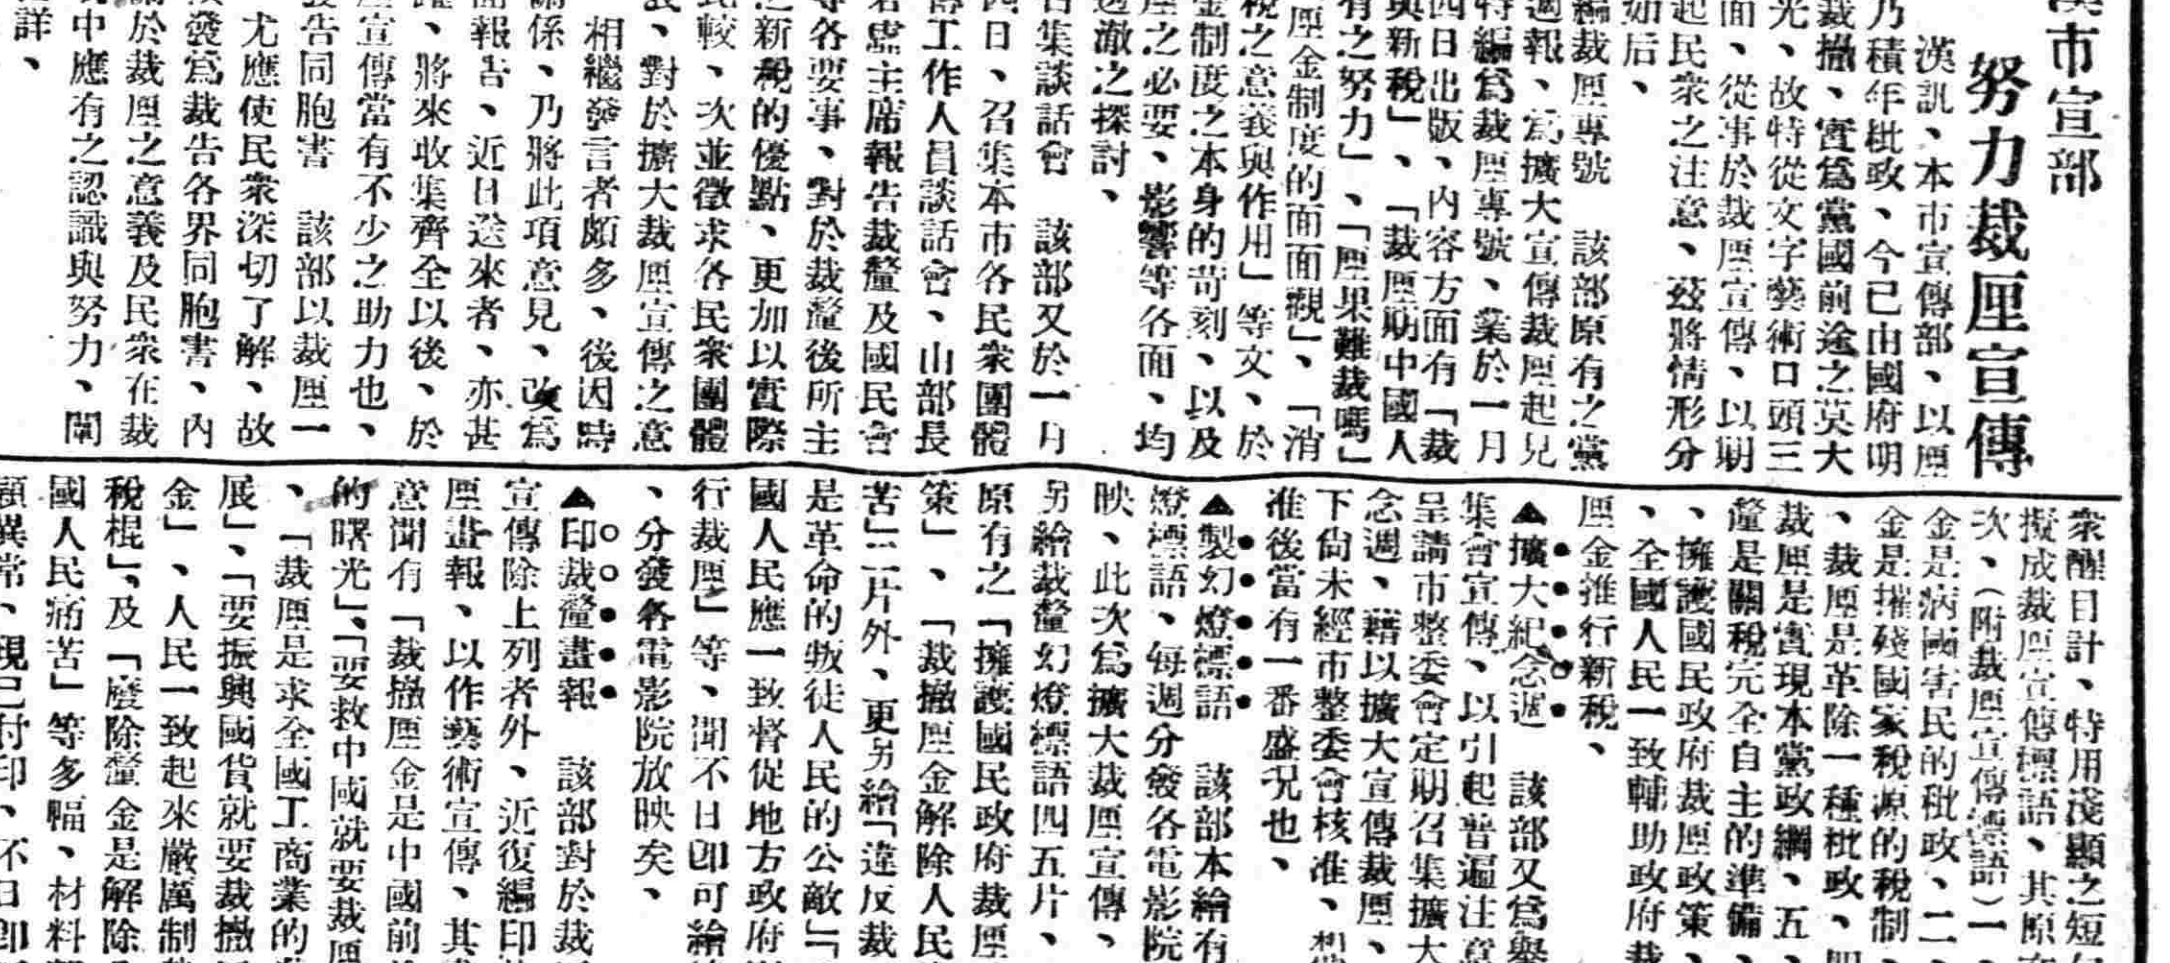 漢市宣部
努力裁厘宣傳
漢訊、本市宣傳部、以厘
乃積年秕政、今已由國府明
裁撤、實爲黨國前途之莫大
光、故特從文字藝術口頭三
面、從事於裁厘宣傳、以期
起民衆之注意、茲將情形分
如后、
編裁厘專號　該部原有之黨
週報、爲擴大宣傳裁厘起見
特編爲裁厘專號、業於一月
四日出版、內容方面有「裁
與新稅」、「裁厘期中國人
有之努力」、「厘果難裁嗎」
厘金制度的面面觀」、「消
稅之意義與作用」等文、於
金制度之本身的苛刻、以及
厘之必要、影響等各面、均
透澈之探討、
召集談話會　該部又於一月
四日、召集本市各民衆團體
傳工作人員談話會、由部長
主席報告裁釐及國民會
等各要事、對於裁釐後所主
之新稅的優點、更加以實際
比較、次並徵求各民衆團體
、對於擴大裁厘宣傳之意
相繼發言者頗多、後因時
關係、乃將此項意見、改爲
面報告、近日送來者、亦甚
、將來收集齊全以後、於
厘宣傳當有不少之助力也、
告同胞書　該部以裁厘一
尤應使民衆深切了解、故
發爲裁告各界同胞書、內
於裁厘之意義及民衆在裁
中應有之認識與努力、闡
詳、
衆醒目計、特用淺顯之短
擬成裁厘宣傳標語、其原
次、（附裁厘宣傳標語）一
金是病國害民的秕政、二
金是摧殘國家稅源的稅制
、裁厘是革除一種秕政、
裁厘是實現本黨政綱、五
釐是關稅完全自主的準備
、擁護國民政府裁厘政策、
、全國人民一致輔助政府裁
厘金推行新稅、
▲擴大紀念週　該部又爲舉
集會宣傳、以引起普遍注意
呈請市整委會定期召集擴大
念週、藉以擴大宣傳裁厘、
下尙未經市整委會核准、想
准後當有一番盛況也、
▲製幻燈標語　該部本繪有
燈標語、每週分發各電影院
映、此次爲擴大裁厘宣傳、
另繪裁釐幻燈標語四五片、
原有之「擁護國民政府裁厘
策」、「裁撤厘金解除人民
苦」二片外、更另繪「違反裁
是革命的叛徒人民的公敵」「
國人民應一致督促地方政府
行裁厘」等、聞不日卽可繪
、分發各電影院放映矣、
▲印裁釐畫報　該部對於裁
宣傳除上列者外、近復編印
厘畫報、以作藝術宣傳、其
意聞有「裁撤厘金是中國前
的曙光」、「要救中國就要裁厘
、「裁厘是求全國工商業的
展」、「要振興國貨就要裁撤
金」、人民一致起來嚴厲制
稅棍」、及「廢除釐金是解除
國人民痛苦」等多幅、材料
頴異常、現已付印、不日卽